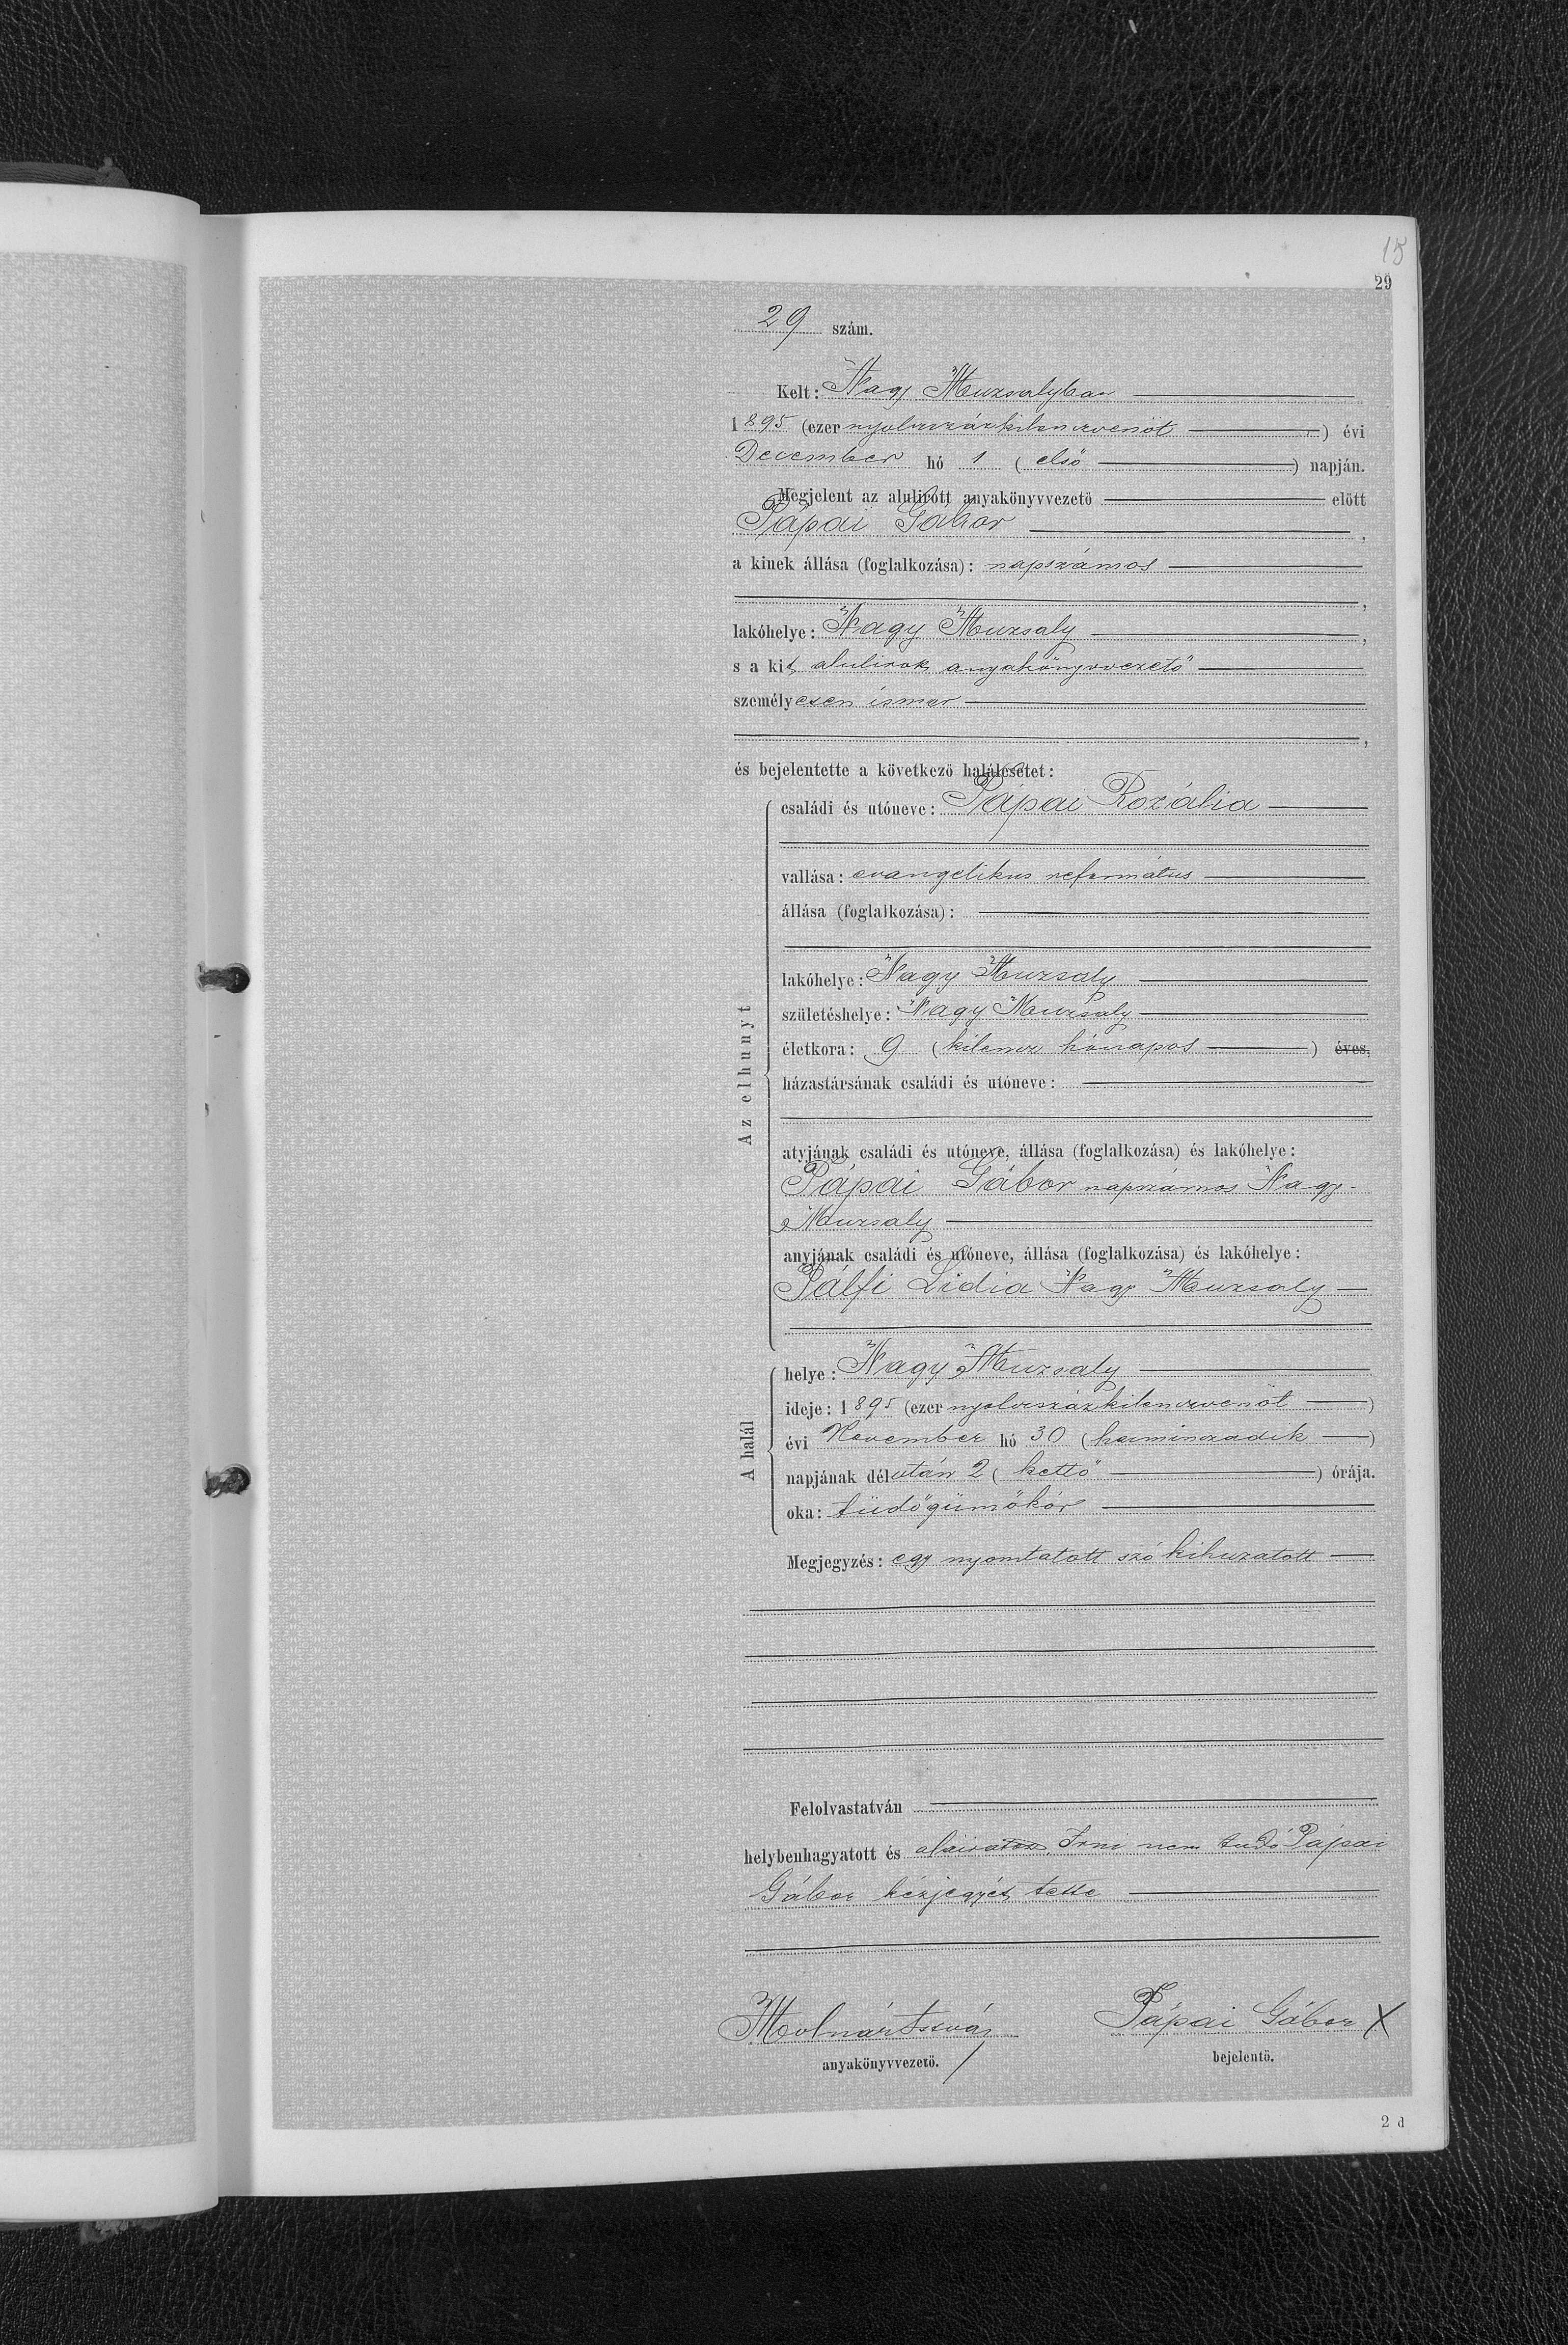 15
29
29 szám.
Kelt: Nagy Muzsalyban
1895 (ezer nyolczszázkilenczvenöt) évi
December hó 1 (első) napján.
Megjelent az alulirott anyakönyvvezető előtt
Pápai Gábor,
a kinek állása (foglalkozása): napszámos
,
lakóhelye: Nagy Muzsaly,
s a kit alulirott anyakönyvvezető
személyesen ismer
,
és bejelentette a következő halálesetet:
Az elhunyt
családi és utóneve: Pápai Rozália
vallása: evangelikus református
állása (foglalkozása):
lakóhelye: Nagy Muzsaly
születéshelye: Nagy Muzsaly
életkora: 9 (kilencz hónapos) éves,
házastársának családi és utóneve:
atyjának családi és utóneve, állása (foglalkozása) és lakóhelye:
Pápai Gábor napszámos Nagy-
Muzsaly
anyjának családi és utóneve, állása (foglalkozása) és lakóhelye:
Pálfi Lidia Nagy Muzsaly
A halál
helye: Nagy Muzsaly
ideje: 1895 (ezer nyolczszázkilenczvenöt)
évi November hó 30 (harminczadik)
napjának délután 2 (kettő) órája.
oka: tüdőgümőkór
Megjegyzés: egy nyomtatott szó kihuzatott
Felolvastatván
helybenhagyatott és aláiratott. Irni nem tudó Pápai
Gábor kézjegyét tette
Molnár István
Pápai Gábor X
anyakönyvvezető.
bejelentő.
2 d